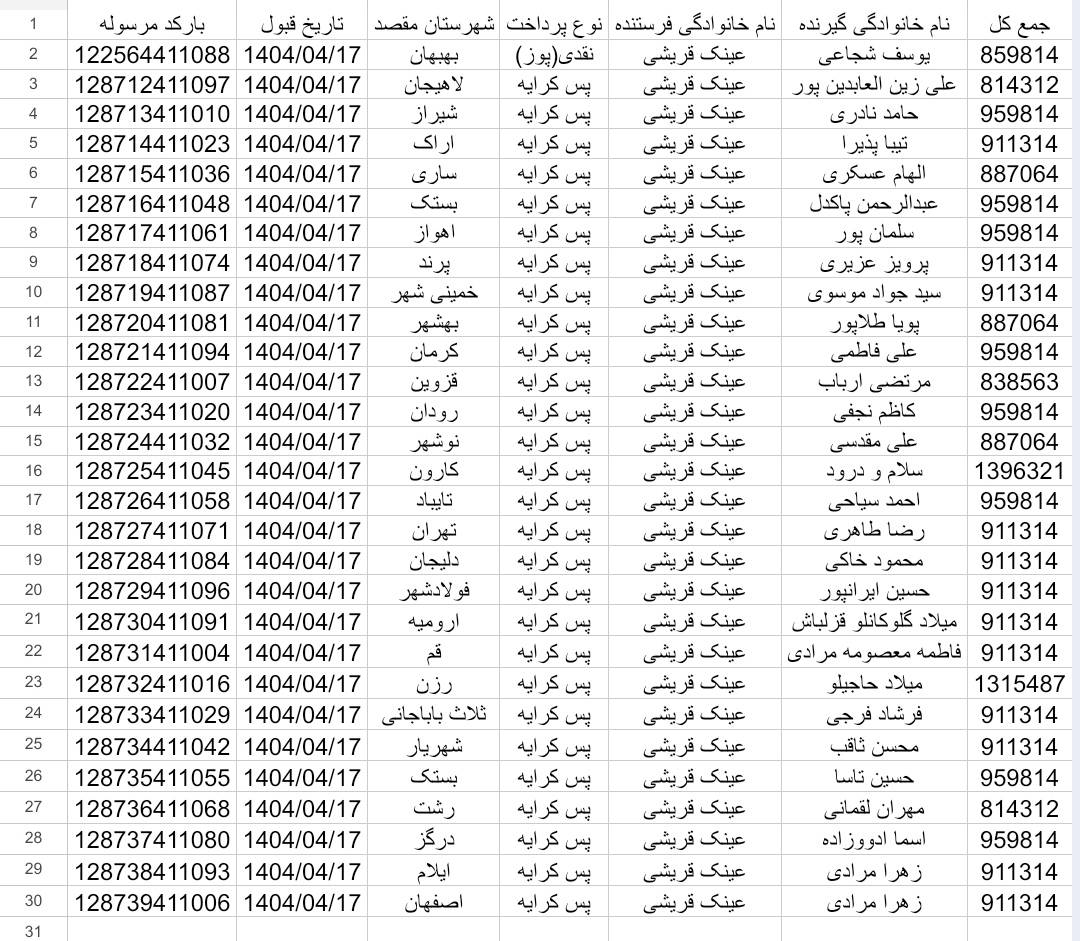 1 بارکد مرسوله تاریخ قبول شهرستان مقصد نوع پرداخت نام خانوادگی فرستنده نام خانوادگی گیرنده جمع کل
2 122564411088 1404/04/17 بهبهان نقدی(پوز) عینک قریشی یوسف شجاعی 859814
3 128712411097 1404/04/17 لاهیجان پس کرایه عینک قریشی علی زین العابدین پور 814312
4 128713411010 1404/04/17 شیراز پس کرایه عینک قریشی حامد نادری 959814
5 128714411023 1404/04/17 اراک پس کرایه عینک قریشی تیبا پذیرا 911314
6 128715411036 1404/04/17 ساری پس کرایه عینک قریشی الهام عسکری 887064
7 128716411048 1404/04/17 بستک پس کرایه عینک قریشی عبدالرحمن پاکدل 959814
8 128717411061 1404/04/17 اهواز پس کرایه عینک قریشی سلمان پور 959814
9 128718411074 1404/04/17 پرند پس کرایه عینک قریشی پرویز عزیری 911314
10 128719411087 1404/04/17 خمینی شهر پس کرایه عینک قریشی سید جواد موسوی 911314
11 128720411081 1404/04/17 بهشهر پس کرایه عینک قریشی پویا طلاپور 887064
12 128721411094 1404/04/17 کرمان پس کرایه عینک قریشی علی فاطمی 959814
13 128722411007 1404/04/17 قزوین پس کرایه عینک قریشی مرتضی ارباب 838563
14 128723411020 1404/04/17 رودان پس کرایه عینک قریشی کاظم نجفی 959814
15 128724411032 1404/04/17 نوشهر پس کرایه عینک قریشی علی مقدسی 887064
16 128725411045 1404/04/17 کارون پس کرایه عینک قریشی سلام و درود 1396321
17 128726411058 1404/04/17 تایباد پس کرایه عینک قریشی احمد سیاحی 959814
18 128727411071 1404/04/17 تهران پس کرایه عینک قریشی رضا طاهری 911314
19 128728411084 1404/04/17 دلیجان پس کرایه عینک قریشی محمود خاکی 911314
20 128729411096 1404/04/17 فولادشهر پس کرایه عینک قریشی حسین ایرانپور 911314
21 128730411091 1404/04/17 ارومیه پس کرایه عینک قریشی میلاد گلوکانلو قزلباش 911314
22 128731411004 1404/04/17 قم پس کرایه عینک قریشی فاطمه معصومه مرادی 911314
23 128732411016 1404/04/17 رزن پس کرایه عینک قریشی میلاد حاجیلو 1315487
24 128733411029 1404/04/17 ثلاث باباجانی پس کرایه عینک قریشی فرشاد فرجی 911314
25 128734411042 1404/04/17 شهریار پس کرایه عینک قریشی محسن ثاقب 911314
26 128735411055 1404/04/17 بستک پس کرایه عینک قریشی حسین تاسا 959814
27 128736411068 1404/04/17 رشت پس کرایه عینک قریشی مهران لقمانی 814312
28 128737411080 1404/04/17 درگز پس کرایه عینک قریشی اسما ادووزاده 959814
29 128738411093 1404/04/17 ایلام پس کرایه عینک قریشی زهرا مرادی 911314
30 128739411006 1404/04/17 اصفهان پس کرایه عینک قریشی زهرا مرادی 911314
31